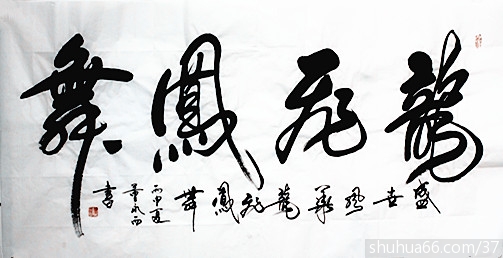 龍飛鳳舞
盛世風龍飛鳳舞
丙申夏
書
shuhua66.com/37